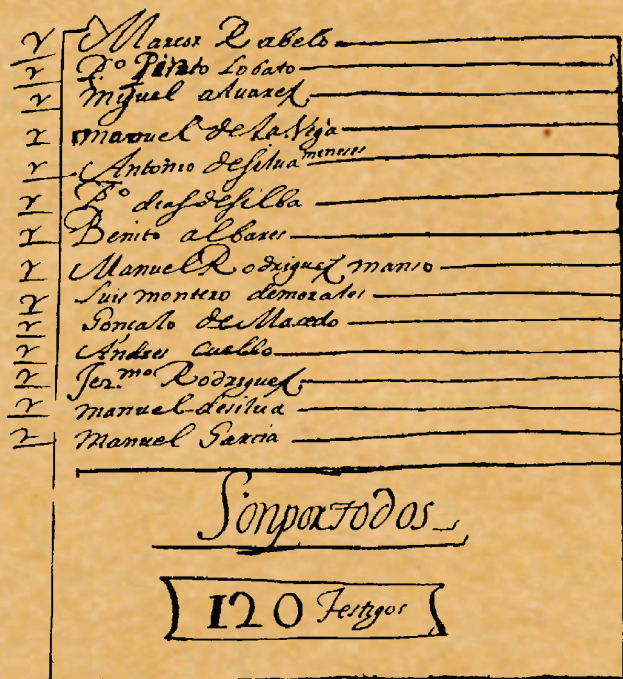 r Marcos Rabelo
r P.º Pinto Lobato
r Miguel aluarez
r manuel de la Vega
r Antonio de silua meneses
r P.º dias de silba
r Benito albares
r Manuel Rodriguez manso
r Luis montero de morales
r Gonçalo de Macedo
r Andres Cuello
r Jer.mo Rodriguez
r manuel de silua
r Manuel Garcia
Son por todos
120 Testigos